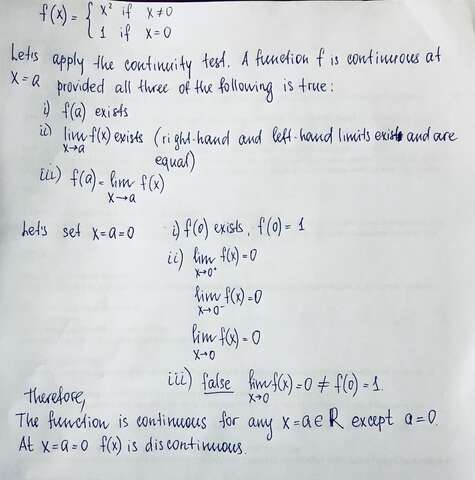 f(x) = { x² if x≠0
1 if x=0
Let's apply the continuity test. A function f is continuous at
x=a provided all three of the following is true:
i) f(a) exists
ii) lim f(x) exists (right-hand and left-hand limits exist and are
x→a
equal)
iii) f(a) = lim f(x)
x→a
Let's set x=a=0 i) f(0) exists, f(0)=1
ii) lim f(x)=0
x→0⁺
lim f(x)=0
x→0⁻
lim f(x)=0
x→0
iii) false lim f(x)=0 ≠ f(0)=1
x→0
Therefore,
The function is continuous for any x=a∈R except a=0.
At x=a=0 f(x) is discontinuous.